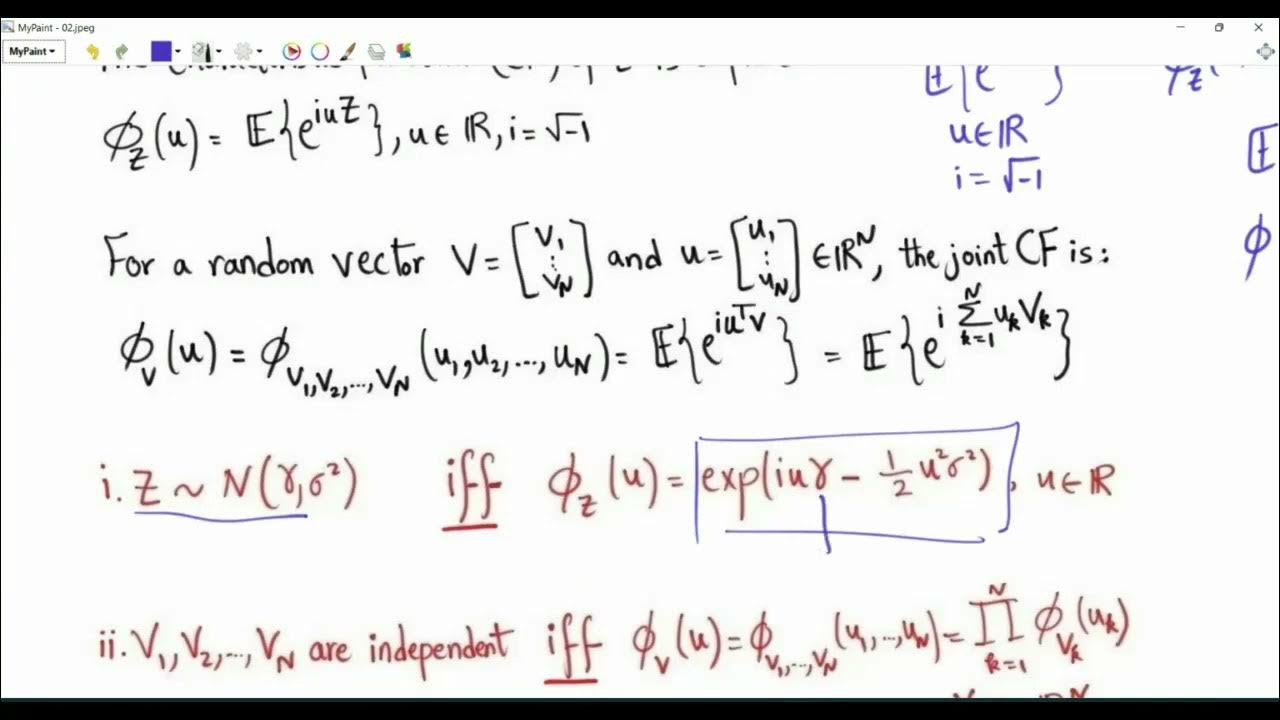 MyPaint - 02.jpeg
MyPaint
E{e }
ϕ_Z(u) = 𝔼{e^{iuZ}}, u∈ℝ, i=√-1
u∈ℝ
i=√-1
For a random vector V = [V₁ ⋮ V_N] and u = [u₁ ⋮ u_N] ∈ℝ^N, the joint CF is:
ϕ
ϕ_V(u) = ϕ_{V₁,V₂,...,V_N}(u₁,u₂,...,u_N) = 𝔼{e^{iu^T V}} = 𝔼{e^{i ∑_{k=1}^{N} u_k V_k}}
i. Z ~ N(γ,σ²) iff ϕ_Z(u) = exp(iuγ - ½u²σ²), u∈ℝ
ii. V₁,V₂,...,V_N are independent iff ϕ_V(u) = ϕ_{V₁,...,V_N}(u₁,...,u_N) = ∏_{k=1}^{N} ϕ_{V_k}(u_k)